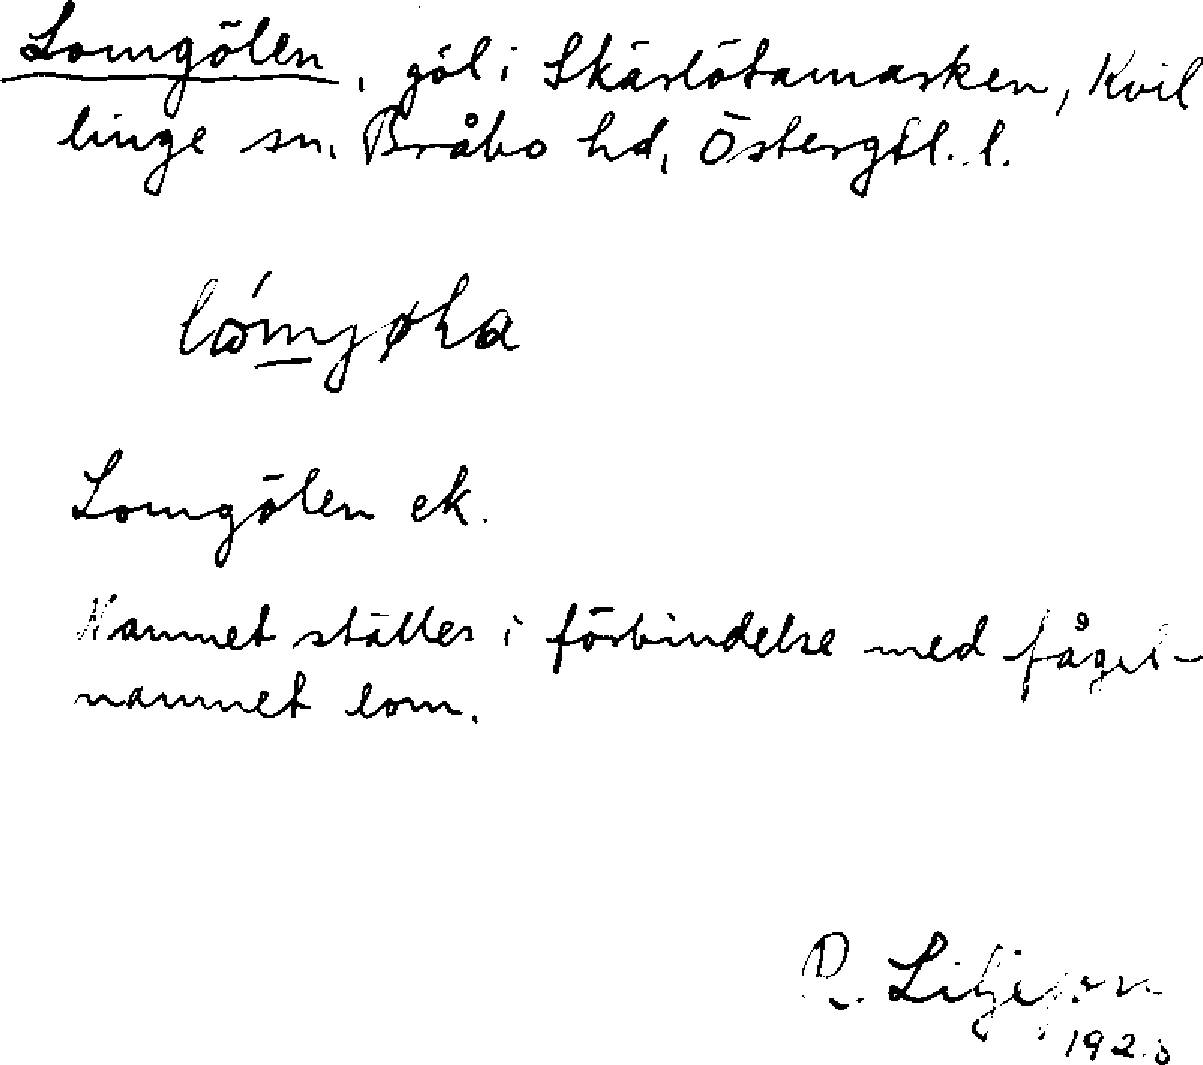 Lomgölen, göl i Skärlötamarken, Kvil
linge sn. Bråbo hd, Östergtl. l.
Lomgölen ek.
Namnet ställes i förbindelse med fågel-
namnet lom.